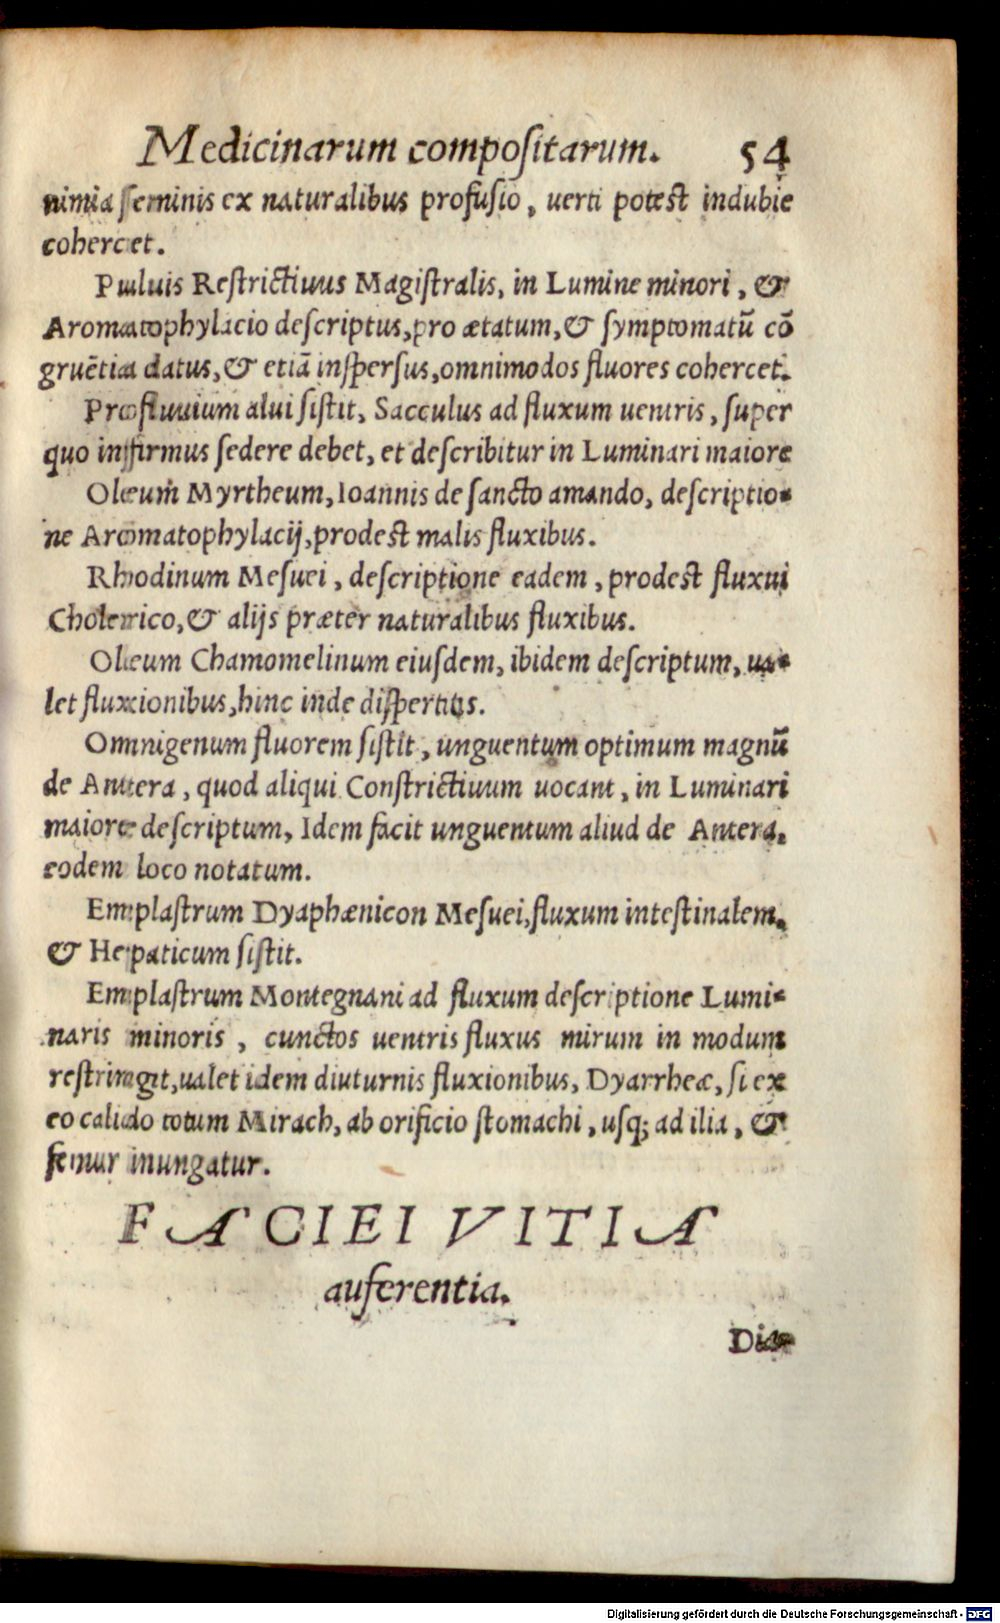 Medicinarum compositarum. 54
nimia seminis ex naturalibus profusio, uerti potest indubie
cohercet.
Puluis Restrictiuus Magistralis, in Lumine minori, &
Aromatophylacio descriptus, pro ætatum, & symptomatũ cõ
gruẽtia datus, & etiã inspersus, omnimodos fluores cohercet.
Præfluuium alui sistit, Sacculus ad fluxum uentris, super
quo infirmus sedere debet, et describitur in Luminari maiore
Oleum Myrtheum, Ioannis de sancto amando, descriptio-
ne Aromatophylacij, prodest malis fluxibus.
Rhodinum Mesuei, descriptione eadem, prodest fluxui
Cholerico, & alijs præter naturalibus fluxibus.
Oleum Chamomelinum eiusdem, ibidem descriptum, ua-
let fluxionibus, hinc inde dispertitis.
Omnigenum fluorem sistit, unguentum optimum magnũ
de Antera, quod aliqui Constrictiuum uocant, in Luminari
maiore descriptum, Idem facit unguentum aliud de Antera,
eodem loco notatum.
Emplastrum Dyaphænicon Mesuei, fluxum intestinalem,
& Hepaticum sistit.
Emplastrum Montegnani ad fluxum descriptione Lumi-
naris minoris, cunctos uentris fluxus mirum in modum
restringit, ualet idem diuturnis fluxionibus, Dyarrheæ, si ex
eo calido totum Mirach, ab orificio stomachi, usq; ad ilia, &
femur inungatur.
FACIEI VITIA
auferentia.
Dia-
Digitalisierung gefördert durch die Deutsche Forschungsgemeinschaft - DFG